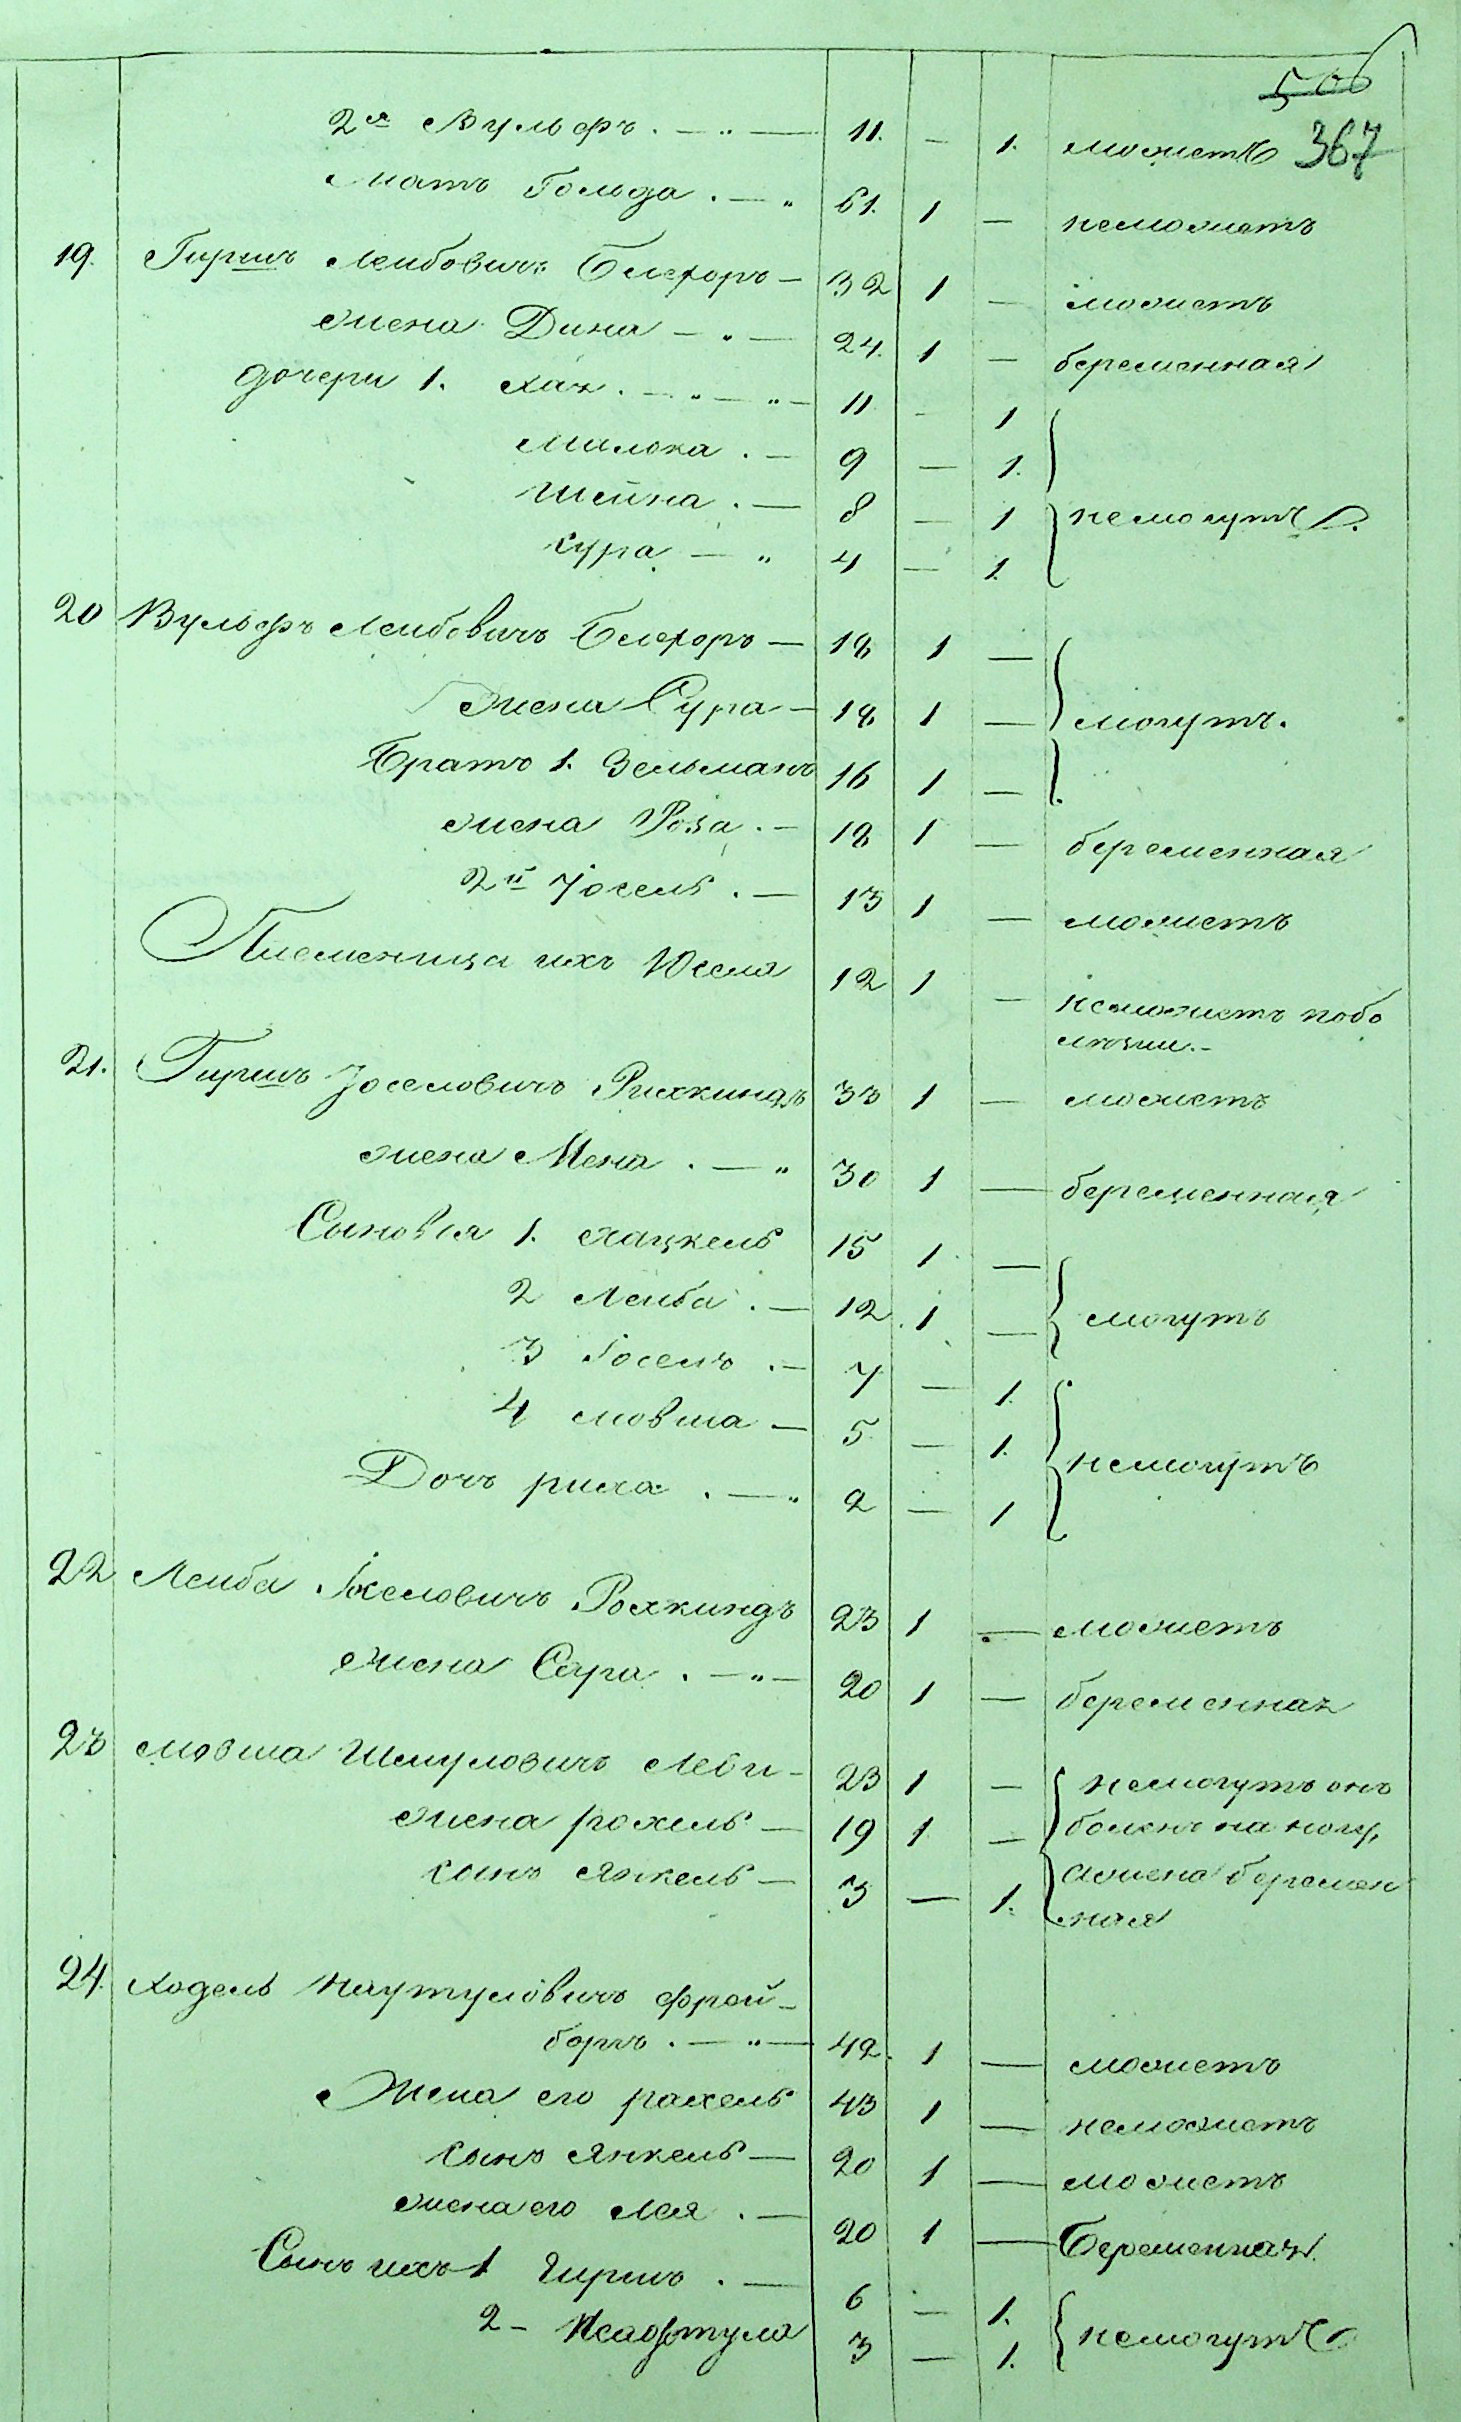 506
367
2я Вульфъ . — " — 11. — 1. можетъ
Мать Гольда . — " 61. 1 — неможетъ
19. Гиршъ Лейбовичъ Блехоръ — 32 1 — можетъ
жена Дина — " — 24. 1 — беременная
дочери 1. Хая . — " — " — 11 — 1
Милока . — 9 — 1.
Шейна . — 8 — 1 немогутъ
Сура — " 4 — 1.
20 Вульфъ Лейбовичъ Блехоръ — 18 1 —
жена Сура — 18 1 — могутъ.
Братъ 1. Зельманъ 16 1 —
жена Роза . — 18 1 — беременная
2й Іосель . — 13 1 — можетъ
Племеница ихъ 12 1 — неможетъ побо
лезни. -
21. Гиршъ Іоселовичъ 33 1 — можетъ
жена Мена . — " 30 1 — беременная
Сыновья 1. Хацкель 15 1 —
2 Лейба . — 12 . 1 — могутъ
3 Іосель . — 7 — 1.
4 Мовша — 5 — 1. немогутъ
Дочь риха . — " 2 — 1
22 Лейба Іоселовичъ Рохкиндъ 23 1 — можетъ
жена Сара . — " — 20 1 — беременная
23 Мовша Шмуловичъ Леви - 23 1 — немогутъ онъ
жена рохель — 19 1 — боленъ на ногу,
сынъ Янкель — 3 — 1. а жена беремен
ная
24. Ходель Наутуловичъ Фрой-
боргъ . — " — 42. 1 — можетъ
Жена его рахель 43 1 — неможетъ
сынъ Янкель — 20 1 — можетъ
жена его Лея . — 20 1 — Беременная
Сынъ ихъ 1 Гиршъ . — 6 — 1.
2 - Нафтула 3 — 1. немогутъ